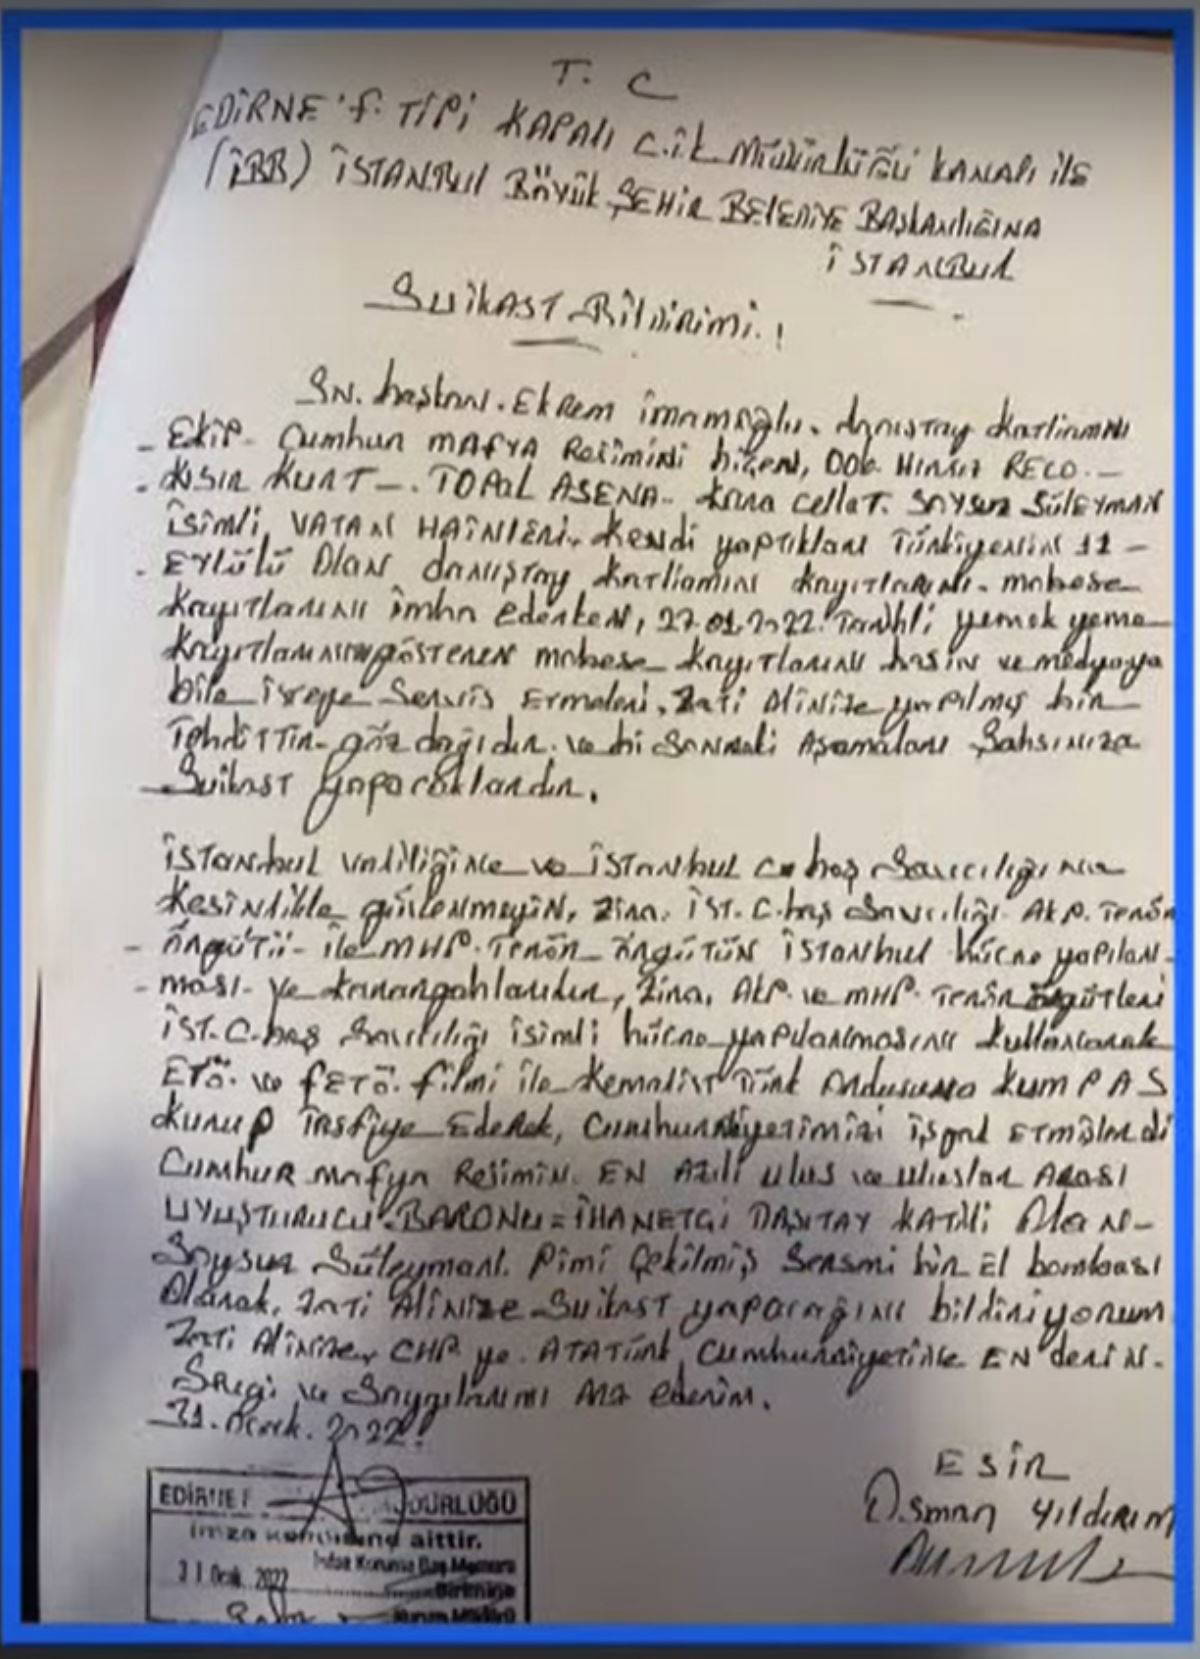 T. C
EDİRNE F. TİPİ KAPALI C.İK MÜDÜRLÜĞÜ KANALI İLE
(İBB) İSTANBUL BÜYÜK ŞEHİR BELEDİYE BAŞKANLIĞINA
İSTANBUL
Suikast Bildirimi.!
SN. başkan. Ekrem imamoğlu. danıştay katliamını
- Ekip- Cumhur MAFYA Rejimini HIRSIZ RECO.-
- KISIR KURT -. TOPAL ASENA- kara cellat. SOYSUZ SÜLEYMAN
isimli, VATAN HAİNLERİ. kendi yaptıkları Türkiyenin 11 -
- EYLÜLÜ OLAN danıştay katliamın kayıtlarını- mobese
kayıtlarını imha ederken, 27.01.2022. Tarihli yemek yeme
kayıtlarını gösteren mobese kayıtlarını basın ve medyaya
bile isteye servis etmeleri, Zati Alinize yapılmış bir
Tehdittir- göz dağıdır. ve bi sonraki Aşamaları şahsınıza
Suikast yapacaklardır.
İstanbul valiliğine ve İstanbul C baş savcılığına
kesinlikle güvenmeyin, zira. İST. C.baş savcılığı- AKP. Terör
- örgütü- ile MHP. Terör- örgütün İstanbul hücre yapılan-
- ması- ve karargahlarıdır, zira, AKP. ve MHP. Terör örgütleri
İST. C.baş savcılığı isimli hücre yapılanmasını kullanarak
ETÖ. ve FETÖ. filmi ile Kemalist Türk ordusuna KUMPAS
kurup Tasfiye Ederek, Cumhuriyetimizi işgal etmişlerdi
Cumhur mafya Rejimin. EN AZILI ulus ve uluslar Arası
UYUŞTURUCU. BARONU = İHANETÇİ DAŞITAY KATİLİ olan-
Soysuz Süleyman. Pimi çekilmiş Sersmi bir El bombası
olarak, zati Alinize suikast yapacağını bildiriyorum
Zati Alinize, CHP ye. ATATÜRK Cumhuriyetine EN derin-
Sevgi ve Saygılarımı arz ederim.
31. ocak. 2022.
ESİR
Osman Yıldırım
EDİRNE F MÜDÜRLÜĞÜ
imza kendisine aittir.
31 Ocak 2022
İnfaz Koruma Baş Memuru